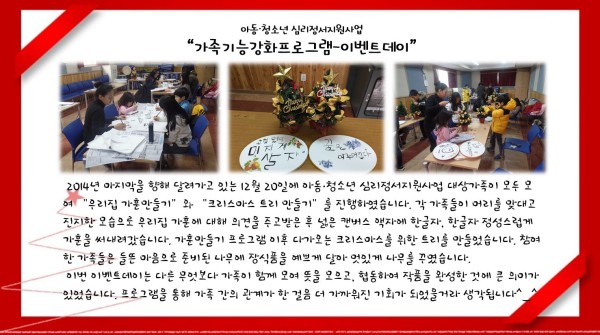 아동·청소년 심리정서지원사업
“가족기능강화프로그램-이벤트데이”
2014년 마지막을 향해 달려가고 있는 12월 20일에 아동·청소년 심리정서지원사업 대상가족이 모두 모
여 “우리집 가훈만들기” 와 “크리스마스 트리 만들기” 를 진행하였습니다. 각 가족들이 머리를 맞대고
진지한 모습으로 우리집 가훈에 대해 의견을 주고받은 후 넓은 캔버스 액자에 한글자, 한글자 정성스럽게
가훈을 써내려갔습니다. 가훈만들기 프로그램 이후 다가오는 크리스마스를 위한 트리를 만들었습니다. 참여
한 가족들은 들뜬 마음으로 준비된 나무에 장식품을 예쁘게 달아 멋있게 나무를 꾸몄습니다.
이번 이벤트데이는 다른 무엇보다 가족이 함께 모여 뜻을 모으고, 협동하여 작품을 완성한 것에 큰 의미가
있었습니다. 프로그램을 통해 가족 간의 관계가 한 걸음 더 가까워진 기회가 되었을거라 생각됩니다^_^